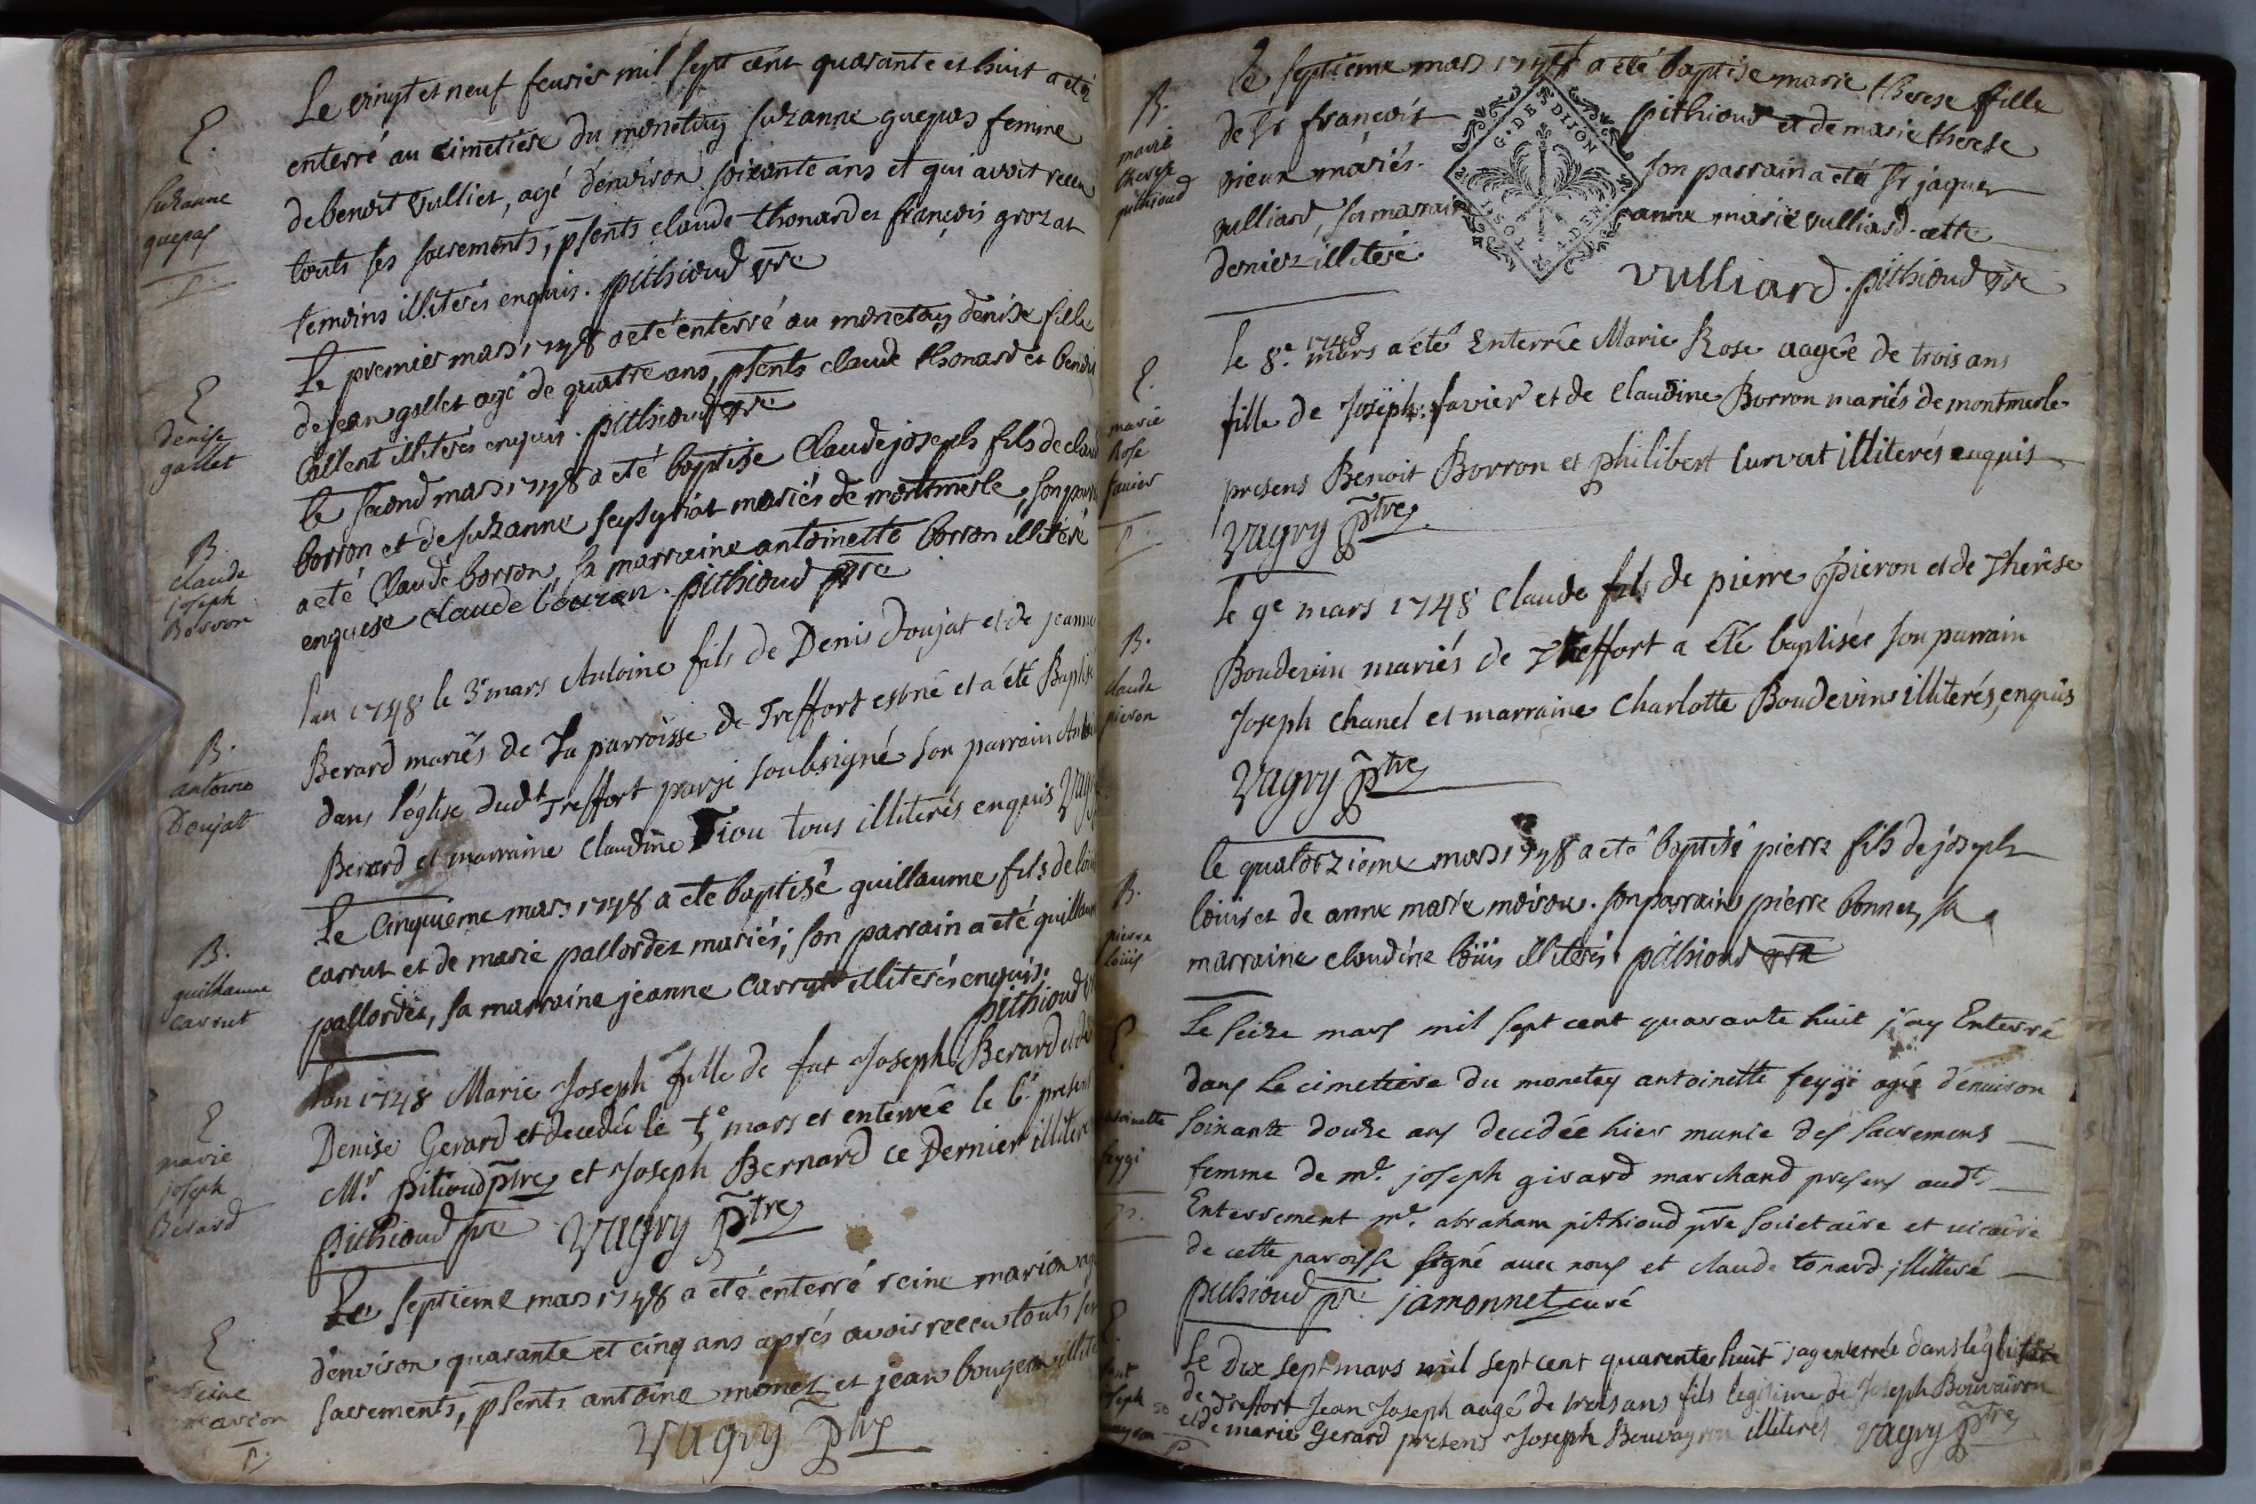 E.
Suzanne
guepas
Le vingt et neuf feurier mil sept cent quarante et huit a eté
enterré au cimetiere du monetay suzanne guepas femme
de benoit vulliet, agé d'environ soixante ans et qui avoit receu
touts ses sacrements, psents claude thonard et françois grozat
temoins illiterés enquis. pithioud ptre
E
denise
gallet
Le premier mars 1748 a eté enterré au monetay denise fille
de jean gallet agé de quatre ans, psents claude thonard et benoit
illiterés enquis. pithioud ptre
B.
claude
joseph
Borron
le second mars 1748 a eté baptise Claude joseph fils de claude
borron et de suzanne mariés de montmerle, son parrain
a eté Claude borron, sa marraine antoinette borron illiteré
enquise claude pithioud ptre
B.
antoine
Doujat
l'an 1748 le 3e mars Antoine fils de Denis Doujat et de jeanne
Berard mariés de la parroisse de Treffort est né et a été Baptisé
dans l'église dudt Treffort par je soubsigné son parrain Antoine
Berard et marraine Claudine Tiou tous illiterés enquis Vagry
B.
guilhaume
carrut
Le Cinquieme mars 1748 a eté baptisé guillaume fils de loüis
carrut et de marie pallordet mariés; son parrain a eté guillaume
pallordet, sa marraine jeanne Carrut illiterés enquis.
pithioud
E
marie
joseph
Berard
l'an 1748 Marie Joseph fille de fut Joseph Berard et de
Denise Gerard et decedée le 5e mars et enterrée le 6e presents
Mr. pitioud ptre et Joseph Bernard ce Dernier illiteré
pithioud ptre Vagry Ptre
E
reine
marion
Le septieme mars 1748 a eté enterré reine marion agé
d'environ quarante et cinq ans aprés avoir receu touts ses
sacrements, psents antoine monet et jean bougeon
Vagry Ptre
B.
marie
therese
pithioud
Le septieme mars 1748 a eté baptise marie therese fille
de sr françois pithioud et de marie therese
vieux mariés. son parrain a eté sr jaques
vulliard, sa marraine anne marie vulliard cette
derniere illiteré
vulliard. pithioud ptre
G. DE DIJON
E.
marie
Rose
fauier
1748
le 8.e mars a été Enterrée Marie Rose aagée de trois ans
fille de Joseph favier et de Claudine Borron mariés de montmerle
presens Benoit Borron et philibert Curvat illiterés enquis
Vagry Ptre
B.
claude
pieron
le 9e mars 1748 Claude fils de pierre Pieron et de Therêse
Boudevin mariés de Treffort a été baptisée son parrain
Joseph Chanel et marraine Charlotte Boudevin illiterés, enquis
Vagry Ptre
B.
pierre
loüis
le quatorzieme mars 1748 a eté baptisé pierre fils de joseph
loüis et de anne marie moiroux. son parrain pierre bonnet, sa
marraine claudine loüis illiterés pithioud ptre
E.
antoinette
feygi
Le seize mars mil sept cent quarante huit j'ay Enterré
dans Le cimetiere du monetay antoinette feygi agée d'enuiron
soixante douze ans decedée hier munie des sacremens
femme de me. joseph girard marchand presens audt
Enterrement me. abraham pithioud ptre societaire et vicaire
de cette paroisse signé auec nous et claude tonard jllitteré
pithioud ptre jamonnet curé
E.
Le Dix sept mars mil sept cent quarente huit j'ay enterré dans l'église
de treffort Jean Joseph aagé de trois ans fils legitime de Joseph Bouvairon
et de marie Gerard presens Joseph Bouvayron illiterés Vagry Ptre